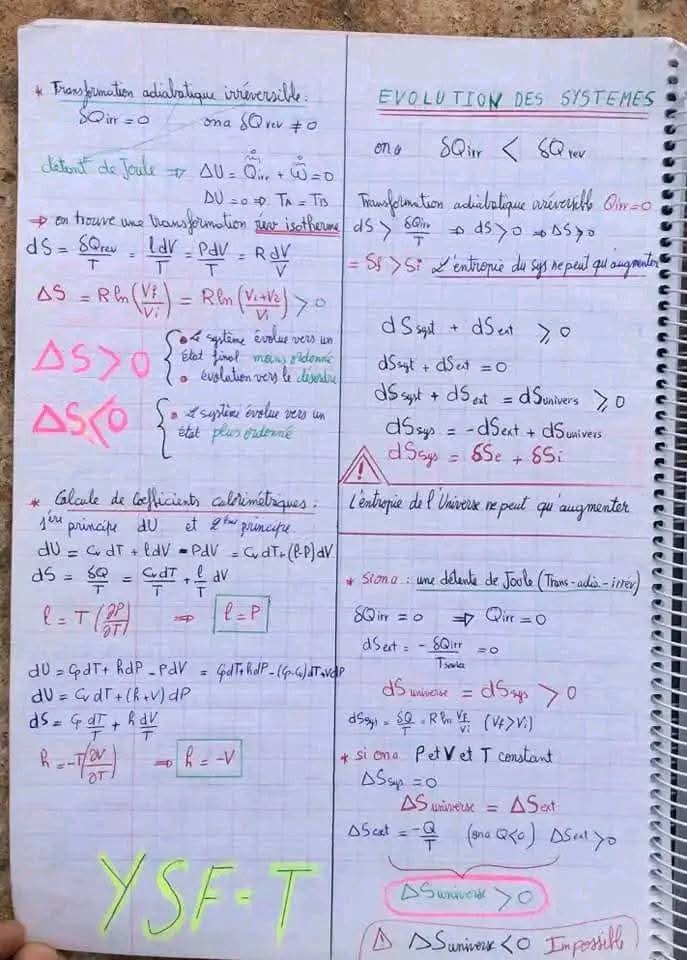 * Transformation adiabatique irréversible :
δQirr = 0 ona δQrev ≠ 0
détent de Joule ⇒ ΔU = Qirr + W = 0
ΔU = 0 ⇒ TA = TB
⇒ on trouve une transformation rév isotherme
dS = δQrev/T = ldV/T = PdV/T = R dV/V
ΔS = R ln(Vf/Vi) = R ln(Vi+V2/Vi) > 0
ΔS > 0 { • Le système évolue vers un
état final moins ordonné
• évolution vers le désordre
ΔS < 0 { • Le système évolue vers un
état plus ordonné
* Calcule de Coefficients calorimétriques :
1ère principe dU et 2ème principe
dU = Cv dT + ldV - PdV = Cv dT + (l-P) dV
dS = δQ/T = Cv dT/T + l/T dV
l = T (∂P/∂T) ⇒ l = P
dU = Cp dT + hdP - PdV = Cp dT + hdP - (Cp-Cv) dT + VdP
dU = Cv dT + (h+V) dP
dS = Cp dT/T + h dV/T
h = -T(∂V/∂T) ⇒ h = -V
YSF-T
EVOLUTION DES SYSTEMES
ona δQirr < δQrev
Transformation adiabatique irréversible Qirr = 0
dS > δQirr/T ⇒ dS > 0 ⇒ ΔS > 0
= Sf > Si L'entropie du sys ne peut qu'augmenter
dSsyst + dSext ⩾ 0
dSsyst + dSext = 0
dSsyst + dSext = dSunivers ⩾ 0
dSsys = -dSext + dSunivers
dSsys = δSe + δSi
⚠ L'entropie de l'Univers ne peut qu'augmenter
* Si ona : une détente de Joole (Trans-adia-irrev)
δQirr = 0 ⇒ Qirr = 0
dSext = -δQirr/Tsource = 0
dSuniverse = dSsys > 0
dSsyst = δQ/T = R ln Vf/Vi (Vf > Vi)
* si ona P et V et T constant
ΔSsys = 0
ΔSuniverse = ΔSext
ΔSext = -Q/T (ona Q<0) ΔSext > 0
ΔSuniverse > 0
⚠ ΔSuniverse < 0 Impossible